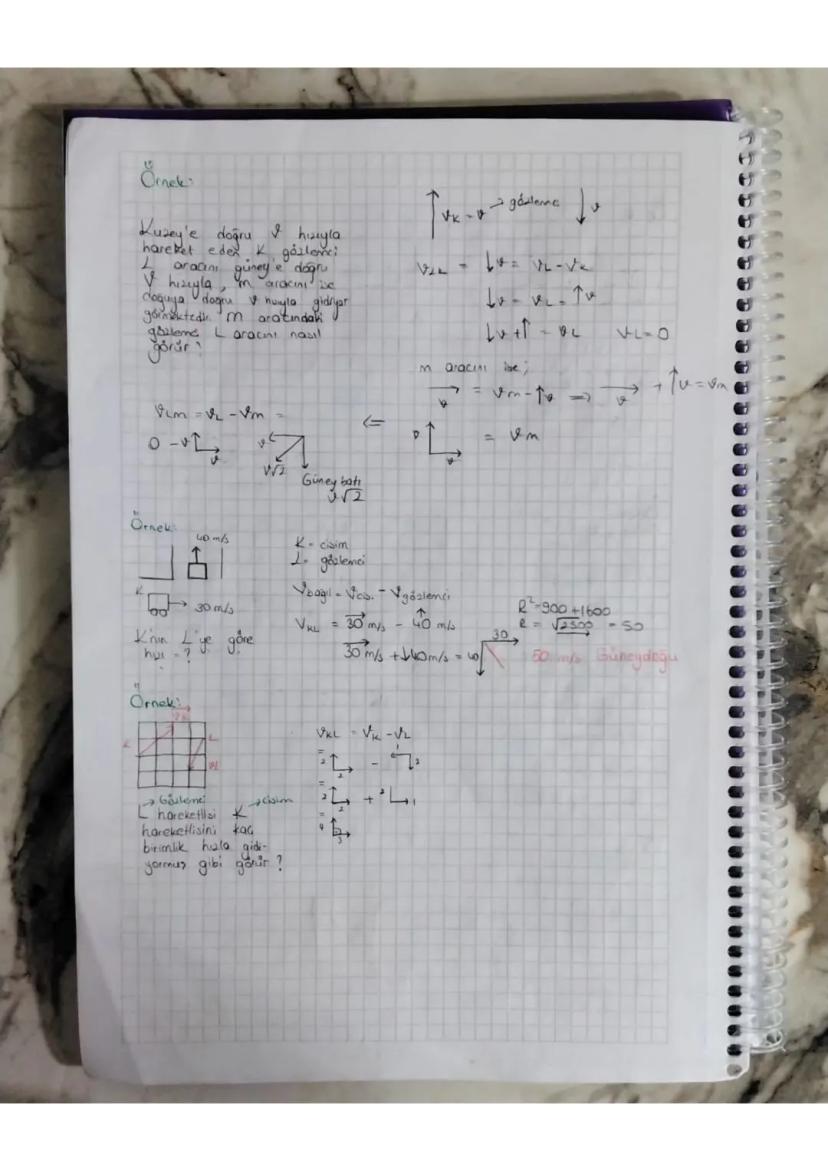 Örnek:
Kuzey'e doğru v hızıyla
hareket eden K gözlemci
L aracını güney'e doğru
V hızıyla, m aracını ise
doğuya doğru v hızıyla gidiyor
görmektedir. m aracındaki
gözlemci L aracını nasıl
görür?
VK = v → gözlemci v
VLK = ↓v = VL - VK
↓v = VL - ↑v
↓v + ↑ = VL VL = 0
m aracını ise;
→ v = vm - ↑v ⇒ → v + ↑v = vm
v v = vm
⇐
VLm = VL - Vm =
0 - v v
v
v√2
Güney batı
v√2
Örnek:
40 m/s
K
30 m/s
K'nın L'ye göre
hızı = ?
K = cisim
L = gözlemci
Vbağıl = Vcis. - Vgözlemci
VKL = 30 m/s - 40 m/s
30 m/s + ↓40 m/s = 40 30
R² = 900 + 1600
R = √2500 = 50
50 m/s Güneydoğu
Örnek:
VK
K L
VL
→ Gözlemci
L hareketlisi K → cisim
hareketlisini kaç
birimlik hızla gidi-
yormuş gibi görür?
VKL = VK - VL
= 2 2 - 1 2
= 2 2 + 2 1
= 4 3